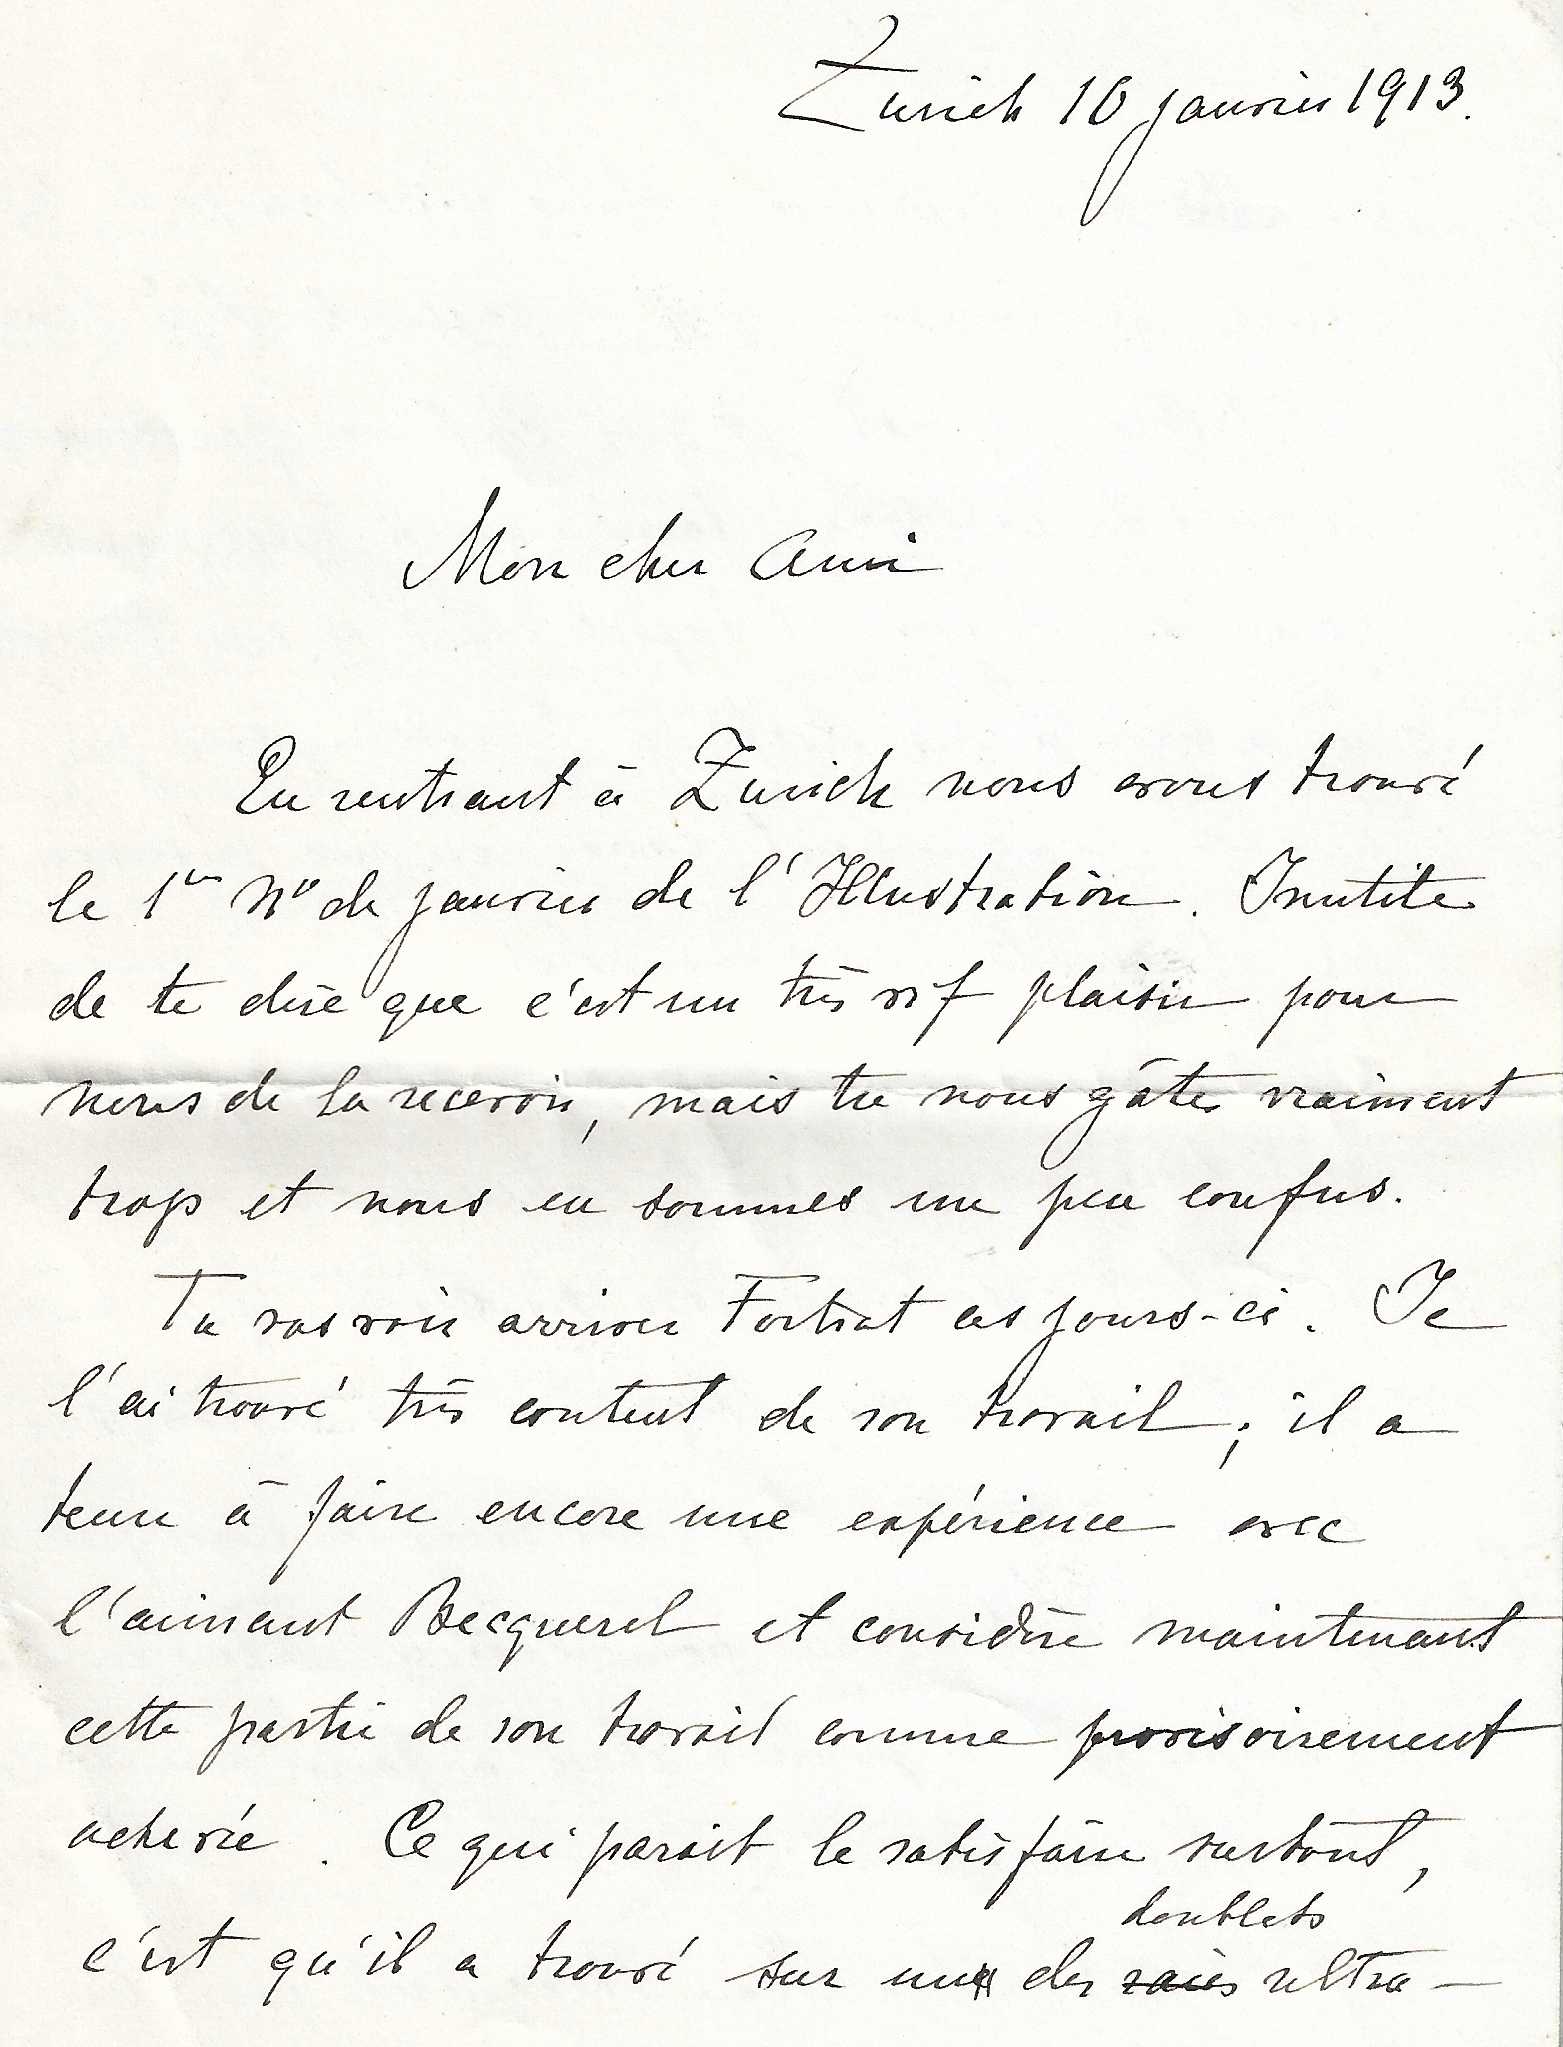 Zurich 10 janvier 1913.
Mon cher Ami
En rentrant à Zurich nous avons trouvé
le 1er No de janvier de l'Illustration. Inutile
de te dire que c'est un très vif plaisir pour
nous de la recevoir, mais tu nous gâtes vraiment
trop et nous en sommes un peu confus.
Tu vas voir arriver Fortrat ces jours-ci. Je
l'ai trouvé très content de son travail; il a
tenu à faire encore une expérience avec
l'aimant Becquerel et considère maintenant
cette partie de son travail comme provisoirement
achevée. Ce qui parait le satisfaire surtout,
doublets
c'est qu'il a trouvé sur un des raies ultra-